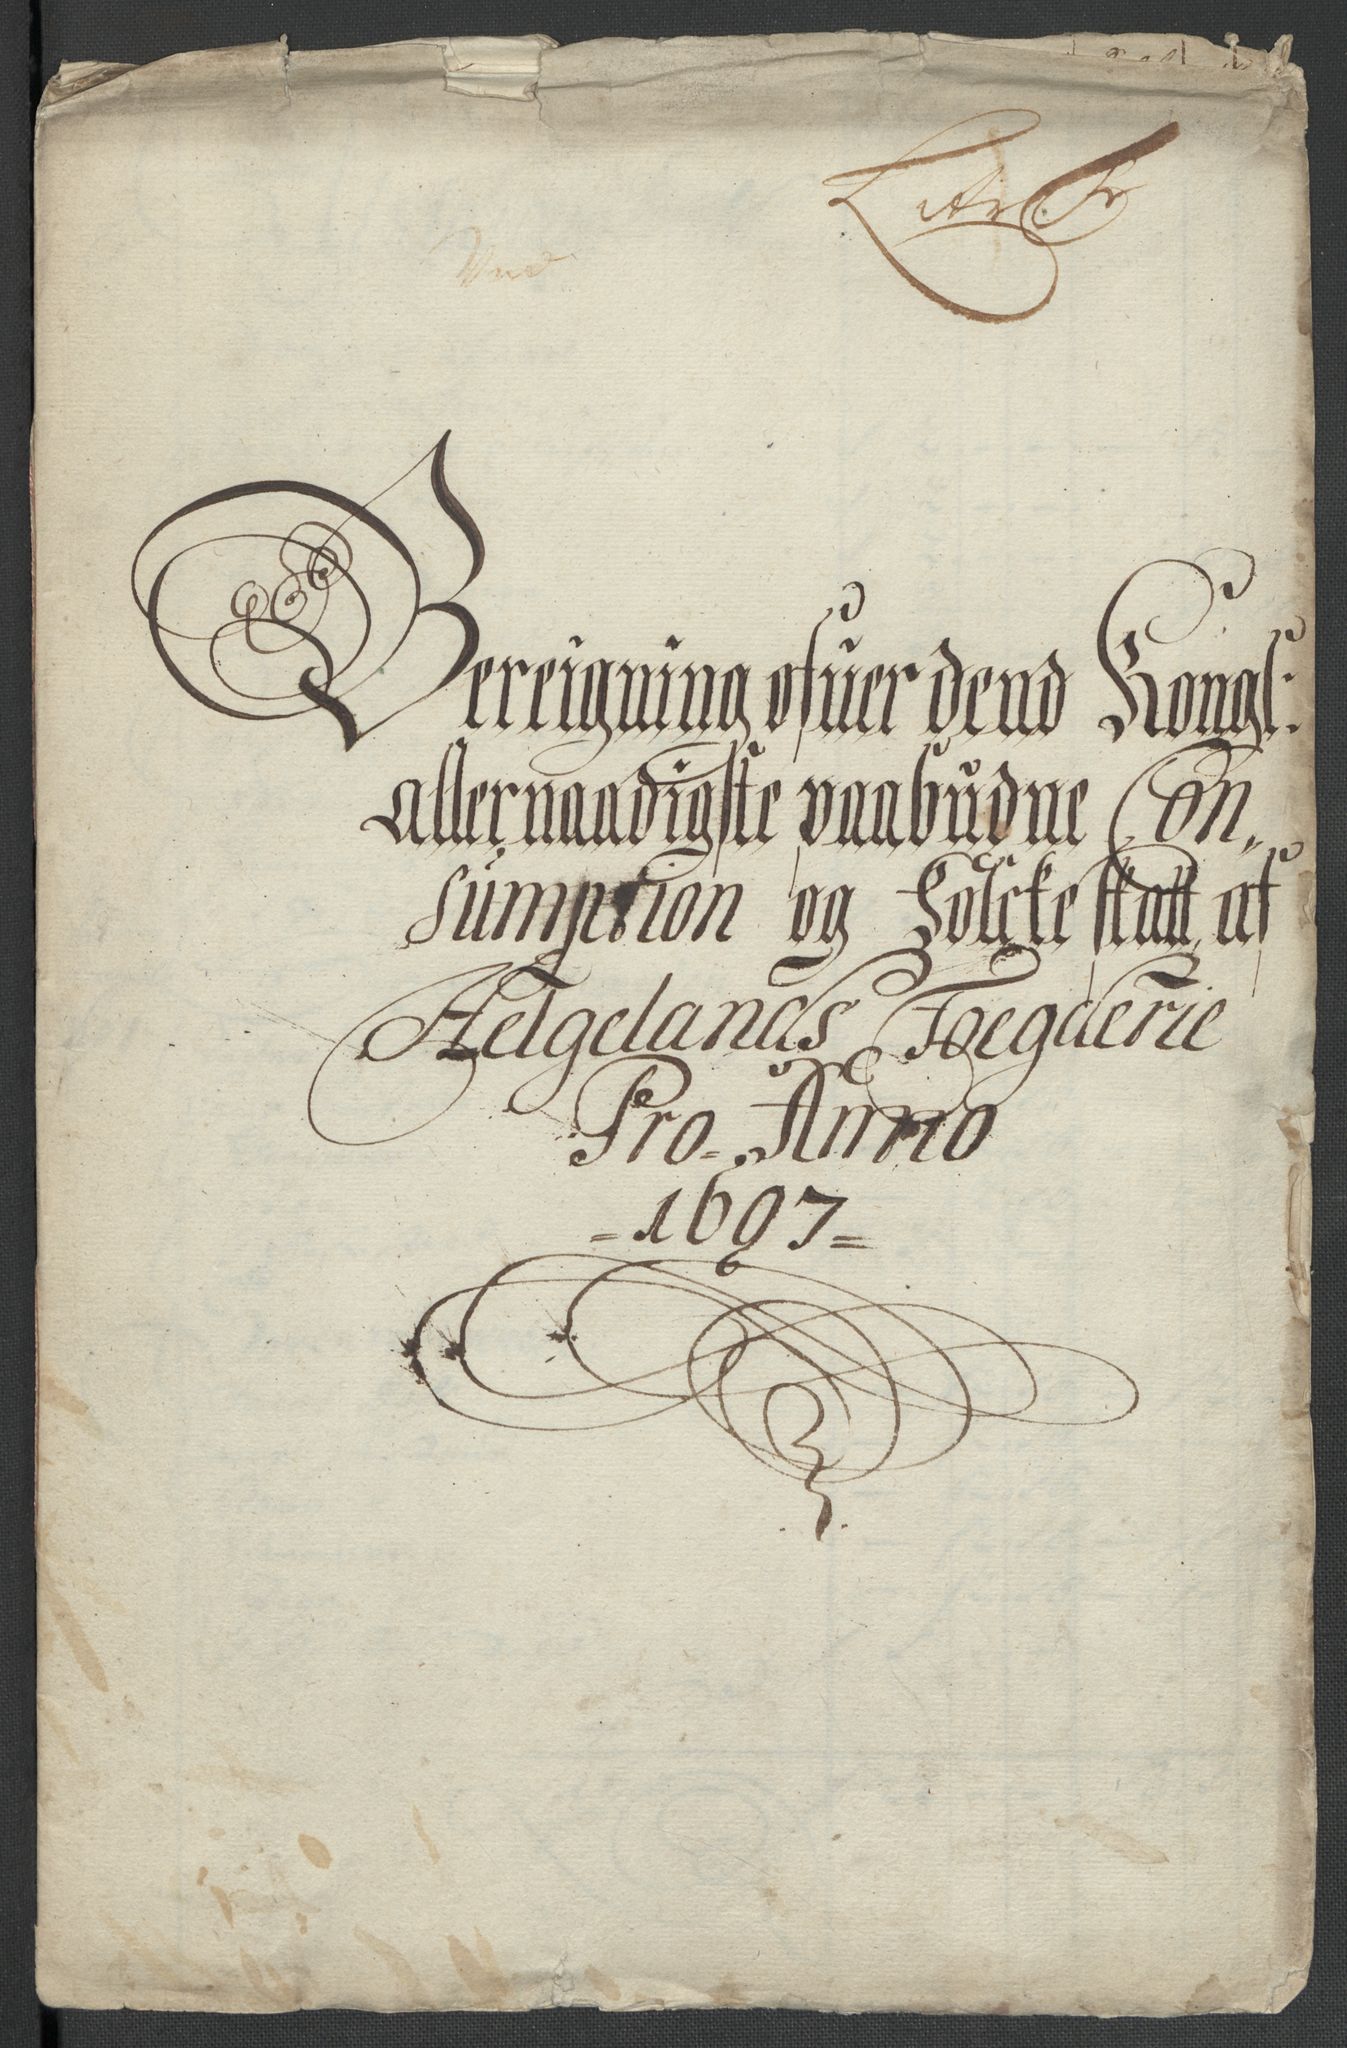 Bereigning ofuer dend Kongl:
allernaadigste paabudne Con„
sumption og Folcke skatt af
Helgelands Foegderie
Pro. Anno
1697